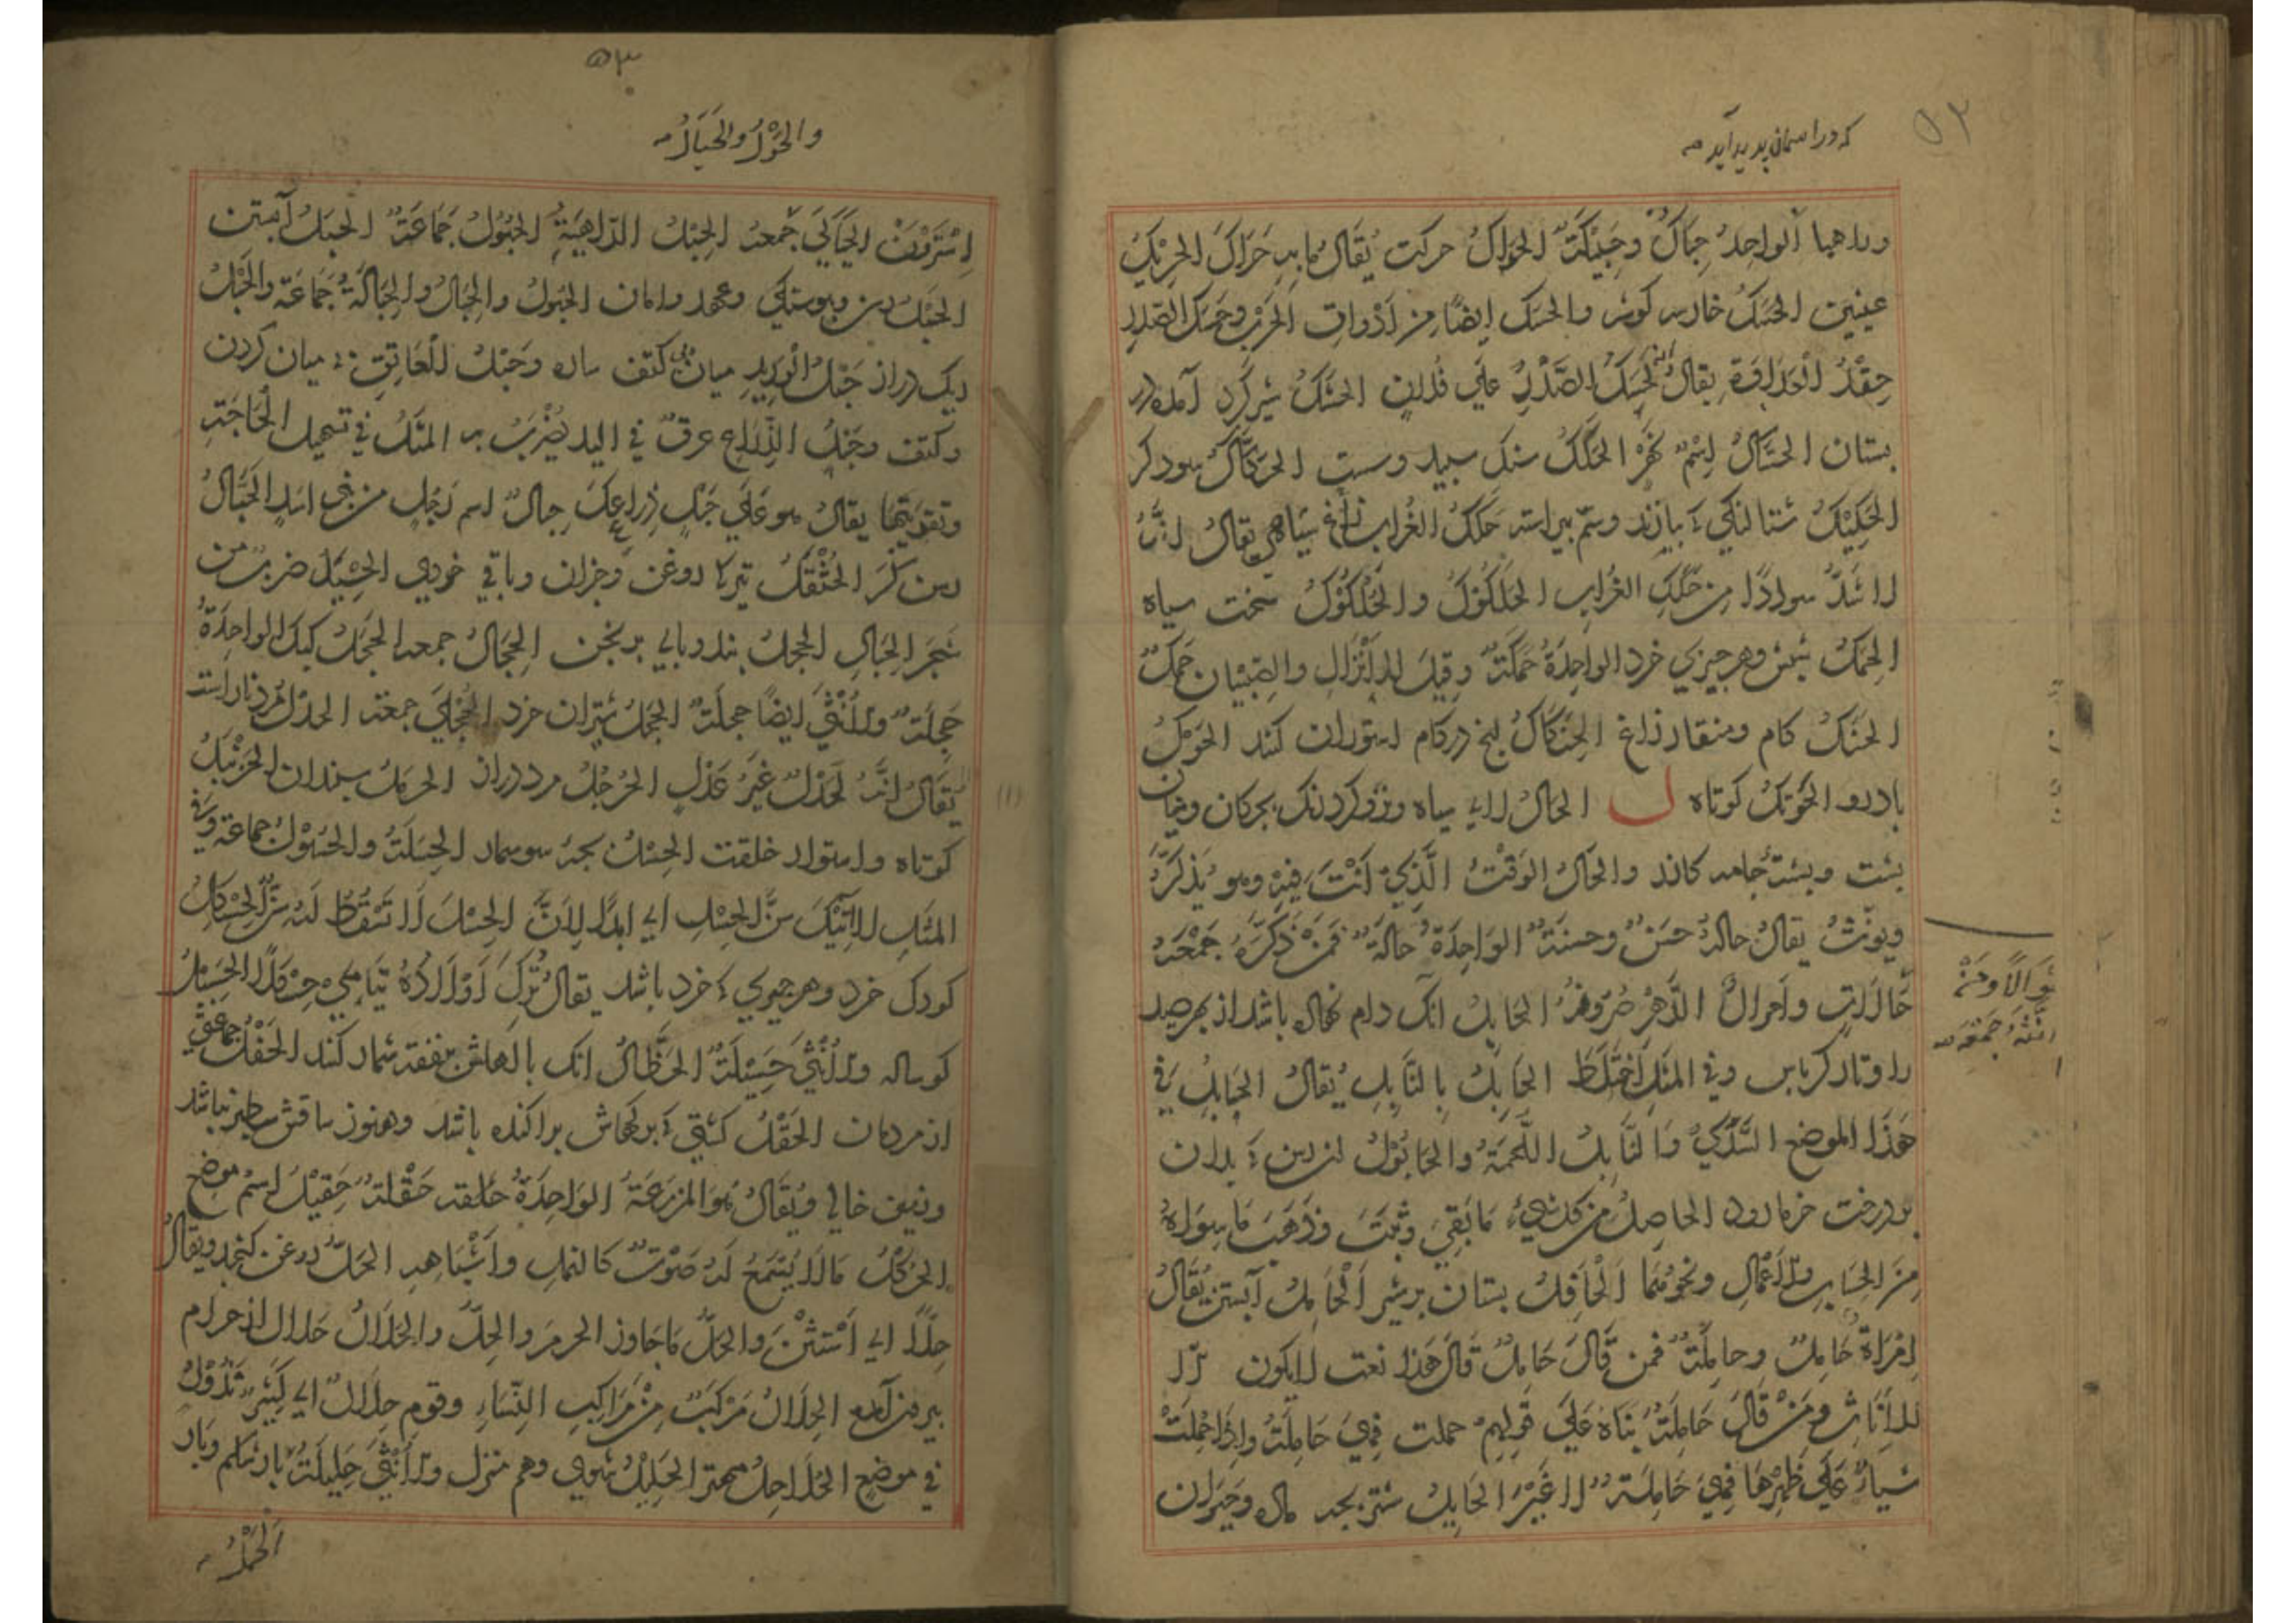 ۵۲
که در اسمان پدید آید
وراهها الواحد حِبَاكٌ وحَبِيْكَةٌ الحَرَاكُ حركت يُقَالُ مابِهِ حَرَاك الحَرِيْكُ
عنين الحَسَكُ خار سه كوشه والحسك ايضًا من اَدَوات الحَرْب وحَسَك الصَدْرِ
حِقْدُ الْعَدَاوَةِ يقالُ اِنَّهُ لَحَسِكُ الصَّدْرِ عَلَى فُلَانٍ الحَشَكُ شير كرد آمده در
بستان الحَشَّاكُ اِسْمُ نَهْر الحَكَكُ سنك سپيد وسست
الحَكِيْكُ شتالنكى كه ببازند وسمّ پيراسته حَلَكُ الغُراب زاغ سياهى يقالُ اِنَّهُ
لَاَشَدُّ سوادًا مِن حَلَكِ الغُراب الحَلَكُوْكُ والحُلْكُوْكُ سخت سياه
الحَمَكُ شپش وهر چيزي خرد الواحِدَةُ حَمَكَةٌ وقيل للاَنْزَالِ والصِّبْيان حَمَكٌ
الحَنَكُ كام ومنقار زاغ الحِنَاكُ لنج در كام استوران كنند الحَوَكُ
بادرو الحَوْتَكُ كوتاه ل الحَالُ لاى سياه
پشت وپشتهٔ جامه كاذر والحَالُ الوَقْتُ الَّذِيْ اَنْتَ فِيْهِ وهو يُذَكَّرُ
ويونّثُ يقالُ حالهُ حَسَنٌ وحسنةٌ الوَاحِدَةُ حالَةٌ فَمَنْ ذَكَّرَهُ جَمْعُهُ
حَالَاتٍ واحوالُ الدَّهْرِ صُرُوفُهُ الحَابِلُ انك دام نهاده باشد از بهر صيد
را وتار كرباس وفي المثَلِ اِخْتَلَطَ الحَابِلُ بِالنَّابِلِ يُقَالُ الحَابِلُ فِي
هَذَا الموضع السَّدَى وَالنَّابِلُ اللُّحْمَةُ والحَابُوْلُ ان رسن كه بدان
بر درخت خرما رود الحاصِلُ مِن كل شيءٍ مَا بَقِيَ وثَبَتَ وذَهَبَ مَا سِوَاهُ
مِنَ الحِسَابِ والاَعْمَالِ ونحوِهَمَا اَلْحَافِلُ بستان پر شير اَلْحَامِلُ آبستن يُقَالُ
اِمْرَاَةٌ حَامِلٌ وحامِلَةٌ فمن قَالَ حَامِلٌ قَالَ هَذَا نعت لايكون اِلّا
للاِنَاثِ ومَنْ قَالَ حَامِلَةٌ بَنَاهُ عَلَى قَولِهِم حملت فهِيَ حَامِلَةٌ واِذَا حَمَلَتْ
شَيئاً عَلَى ظَهْرِهَا فهِيَ حَامِلَةٌ لا غَيْرُ الحَايِلُ شتر بچه ماده وحَيَوان
اُنَّثَهُ جَمَعَهُ
۵۳
والحُوْلُ والحِيَالُ
الحَيَالَى جَمعه الحِبْلُ الدّاهِيَةُ الحُبُوْلُ جَمَاعَةٌ الحَبَلُ آبستن
الحَبْلُ رسن وپيوستكي وعهد وامان الحُبُولُ والحِبَالُ والحِبَالَةُ جَمَاعَة والحَبْلُ
ريك دراز حَبْلُ الْوَرِيدِ ميان كتف وحَبْلُ الْعَاتِقِ ميان كردن
وكتف وحَبْلُ الذِّرَاعِ عرقٌ في اليد يُضْرَبُ به المثَلُ في تسهيل الْحَاجَةِ
وتقريبها يقالُ هو عَلَى حَبْلِ ذِرَاعِكَ حِبالٌ اسم رَجُلٍ من بني اسدٍ الحَبَّالُ
رسن كر الحُثْفُلُ تيركا روغن وجزان وباقي خوردى الحَثِيَلُ ضربٌ من
شَجَر الجِبَالِ الحِجْلُ بند وپاي برنجن الحِجَالُ جمعه الحَجَلُ كبك الواحِدَةُ
حَجَلَةٌ وللاُنْثَى ايضًا حجلَةٌ الحَجَلُ شتران خرد الحِجْلَى جمعه الحدْلُ مردناراست
يُقَالُ اِنَّهُ لَحَدْلٌ غَيْرُ عَدْلٍ الحَرْجُلُ مرد دراز الحرمَلُ سپندان الحَزَنْبَلُ
كوتاه واستوار خلقت الحِسْلُ بچه سوسمار الحِسَلَةُ والحُسُوْلُ جماعة وفي
المثَلِ لا آتِيْكَ سِنَّ الحِسْلِ اي ابدًا لِاَنَّ الحِسْلَ لَا تَسْقُطُ لَهُ سِنٌّ الحِسْكِلُ
كودك خرد وهر چيزي كه خرد باشد يقالُ تُرِكَ اَوْلَادُهُ يَتَامَى حِسْكَلًا الحَسِيْلُ
كوساله وللاُنْثَى حَسِيْلَةٌ الحَظَّالُ انك با اهلش بنفقه شمار كند الحَفْلُ جماعتي
از مردمان الحَقْلُ كشتى كه بركهاش پراكنده باشد وهنوز ساقش سطبر نباشد
وزمين خالي ويُقَالُ هُوَ المَزرَعَةُ الواحِدَةُ حَقْلَةٌ حَقِيْلٌ اِسْم موضع
الحُكْلُ مَا لَا يُسْمَعُ لَهُ صَوْتٌ كالنمل واَشْبَاهِهِ الحَلُّ روغن كنجد ويقالُ
حِلًّا اي اَسْتَثْنِ والحِلُّ مَا جَاوز الحرم والحِلُّ والحَلَالُ حلال از حرام
بيرون آمده الحِلَالُ مَرْكَبٌ مِنْ مَرَاكِبِ النِّسَاءِ وقوم حِلَالٌ اي كَثِيْرٌ نُزُوْلٌ
في موضع الحُلَاحِلُ مهتر الحَلِيْلُ شوي وهم منزل وللاُنْثَى حَلِيْلَةٌ بار شكم وبار
اَلْحَمْلُ